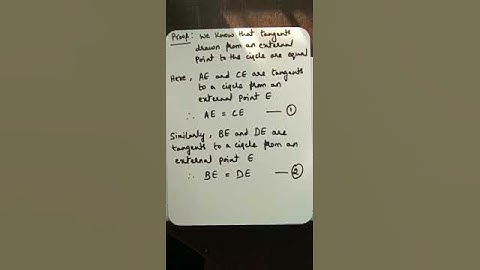 Proof: We know that tangents
drawn from an external
point to the circle are equal
Here, AE and CE are tangents
to a circle from an
external point E
∴ AE = CE — ①
Similarly, BE and DE are
tangents to a circle from an
external point E
∴ BE = DE — ②